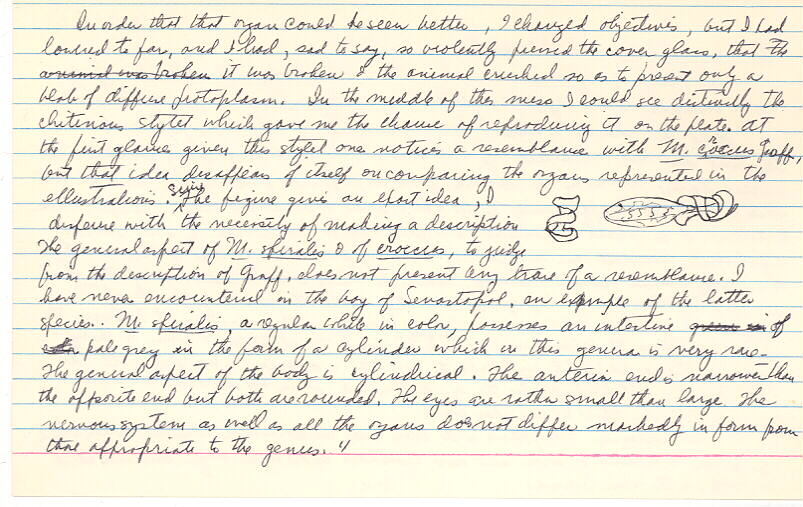 In order that that organ could be seen better, I changed objectives, but I had
lowered to far, and I had, sad to say, so violently pressed the cover glass, that the
animal was broken it was broken & the animal crushed so as to present only a
blob of diffuse protoplasm. In the middle of this mess I could see distinctly the
chitinious stylet which gave me the chance of reproducing it on the plate. At
the first glance given this stylet one notices a resemblance with M. croceus Graff,
but that idea disappears of itself on comparing the organs represented in the
ellustrations. Since the figure gives an exact idea, I
dispense with the necessity of making a description
The general aspect of M. spiralis & of croceus, to judge
from the description of Graff, does not present any trace of a resemblance. I
have never encountered in the bay of Sevastopol, an example of the latter
species. M. spiralis, a regular white in color, possesses an intestine of
pale grey in the form of a cylinder which in this genera is very rare.
The general aspect of the body is cylindrical. The anterior end is narrower than
the opposite end but both are rounded. The eyes are rather small than large. The
nervous system as well as all the organs does not differ markedly in form from
those appropriate to the genus."